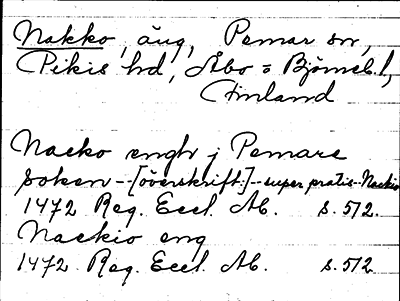 Nakko, äng, Pemar sn,
Pikis hd, Åbo o Björneb. l,
Finland
Naeko ængh j Pemare
soken -- [överskrift:] -- super pratis Naekio
1472 Reg. Eccl. Ab. s. 512.
Naekio eng
1472 Reg. Eccl. Ab. s. 512